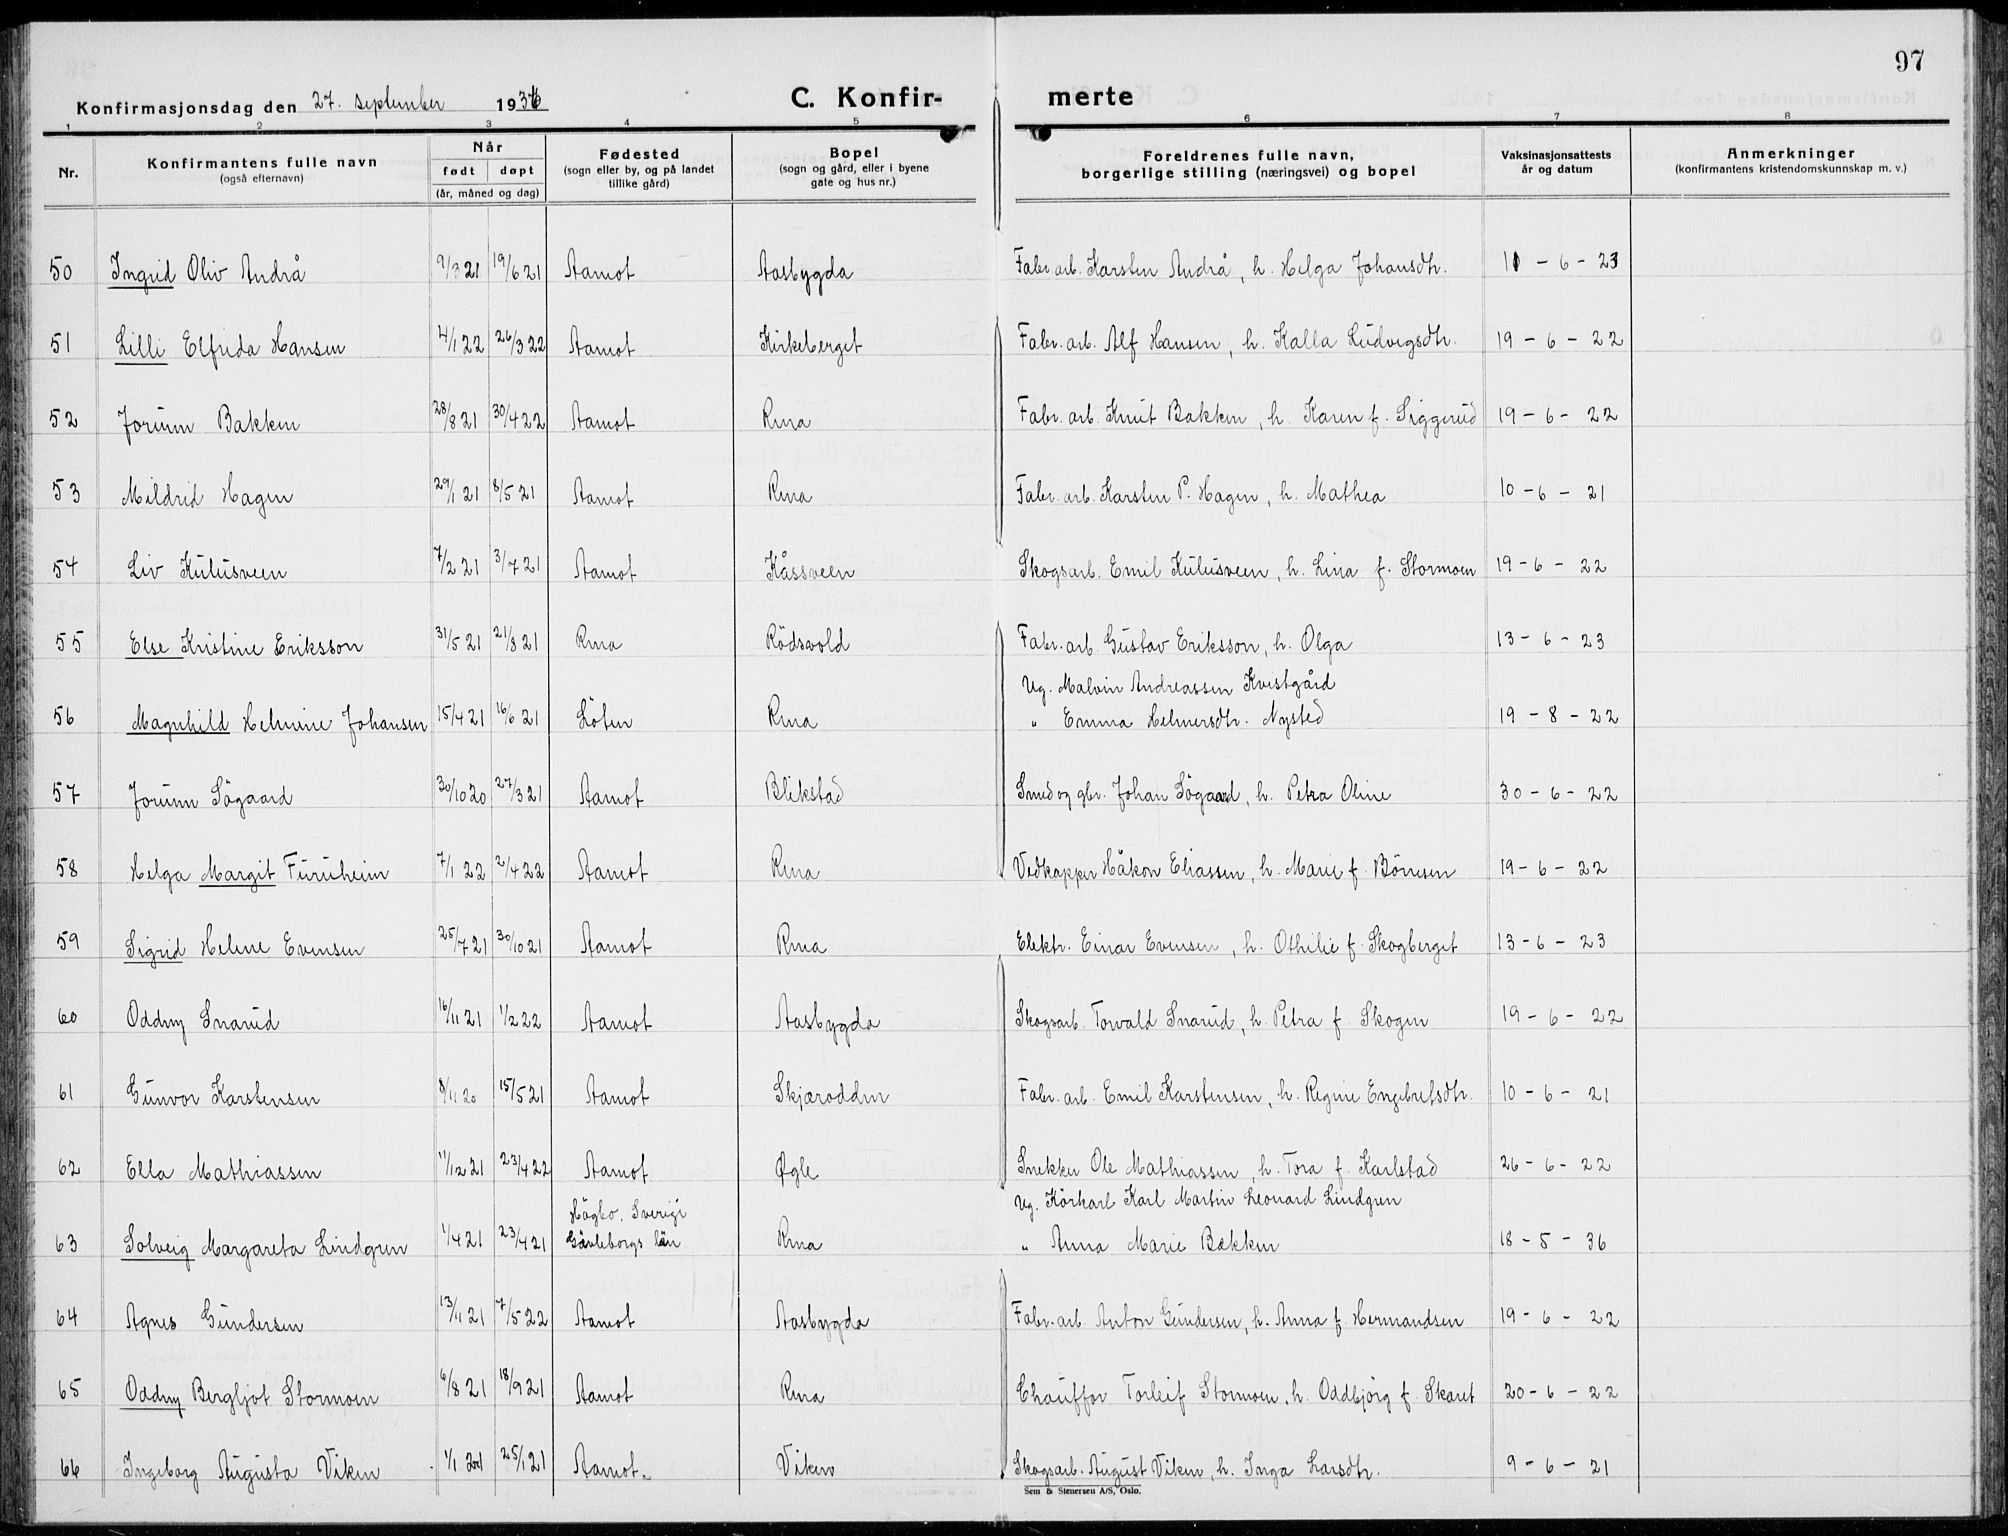 97
Konfirmasjonsdag den 27. september 1936 C. Konfir- merte
1 2 3 4 5 6 7 8
Nr. Konfirmantens fulle navn (også efternavn) Når født døpt (år, måned og dag) Fødested (sogn eller by, og på landet tillike gård) Bopel (sogn og gård, eller i byene gate og hus nr.) Foreldrenes fulle navn, borgerlige stilling (næringsvei) og bopel Vaksinasjonsattests år og datum Anmerkninger (konfirmantens kristendomskunnskap m. v.)
50 Ingrid Oliv Andrå 9/3 21 19/6 21 Aamot Aasbygda Fabr. arb. Karsten Andrå, h. Helga Johansdtr. 11 - 6 - 23
51 Lilli Elfrida Hansen 4/1 22 26/3 22 Aamot Kirkeberget Fabr. arb. Alf Hansen, h. Kalla Ludvigsdtr. 19 - 6 - 22
52 Jorunn Bakken 28/8 21 30/4 22 Aamot Rena Fabr. arb. Knut Bakken, h. Karen f. Siggerud 19 - 6 - 22
53 Mildrid Hagen 29/1 21 8/5 21 Aamot Rena Fabr. arb. Karsten P. Hagen, h. Mathea 10 - 6 - 21
54 Liv Kulusveen 7/2 21 3/7 21 Aamot Kåssveen Skogsarb. Emil Kulusveen, h. Lina f. Stormoen 19 - 6 - 22
55 Else Kristine Eriksson 31/5 21 21/8 21 Rena Rödsvold Fabr. arb. Gustav Eriksson, h. Olga 13 - 6 - 23
Ug. Malvin Andreassen Kvistgård
56 Magnhild Helmine Johansen 15/4 21 16/6 21 Löten Rena " Emma Helmersdtr. Nysted 19 - 8 - 22
57 Jorunn Sögaard 30/10 20 27/3 21 Aamot Blikstad Smed og gbr. Johan Sögaard, h. Petra Oline 30 - 6 - 22
58 Helga Margit Furuheim 7/1 22 2/4 22 Aamot Rena Vedkapper Håkon Eliassen, h. Marie f. Börresen 19 - 6 - 22
59 Sigrid Helene Evensen 25/7 21 30/10 21 Aamot Rena Elektr. Einar Evensen, h. Othilie f. Skogberget 13 - 6 - 23
60 Oddny Snarud 16/11 21 1/2 22 Aamot Aasbygda Skogsarb. Torvald Snarud, h. Petra f. Skogen 19 - 6 - 22
61 Gunvor Karstensen 8/11 20 15/5 21 Aamot Skjærodden Fabr. arb. Emil Karstensen, h. Regine Engebretsdtr. 10 - 6 - 21
62 Ella Mathiassen 11/12 21 23/4 22 Aamot Øgle Snekker Ole Mathiassen, h. Tora f. Karlstad 26 - 6 - 22
Högbo, Sverige Ug. Körkarl Karl Martin Leonard Lindgren
63 Solveig Margareta Lindgren 1/4 21 23/4 21 Gävleborgs län Rena " Anna Marie Bækken 18 - 5 - 36
64 Agnes Gundersen 13/11 21 7/5 22 Aamot Aasbygda Fabr. arb. Anton Gundersen, h. Anna f. Hermandsen 19 - 6 - 22
65 Oddny Bergljot Stormoen 6/8 21 18/9 21 Aamot Rena Chauffør Torleif Stormoen, h. Oddbjörg f. Skaret 20 - 6 - 22
66 Ingeborg Augusta Viken 1/1 21 25/1 21 Aamot. Viken Skogsarb. August Viken, h. Inga Larsdtr. 9 - 6 - 21
Sem & Stenersen A/S, Oslo.